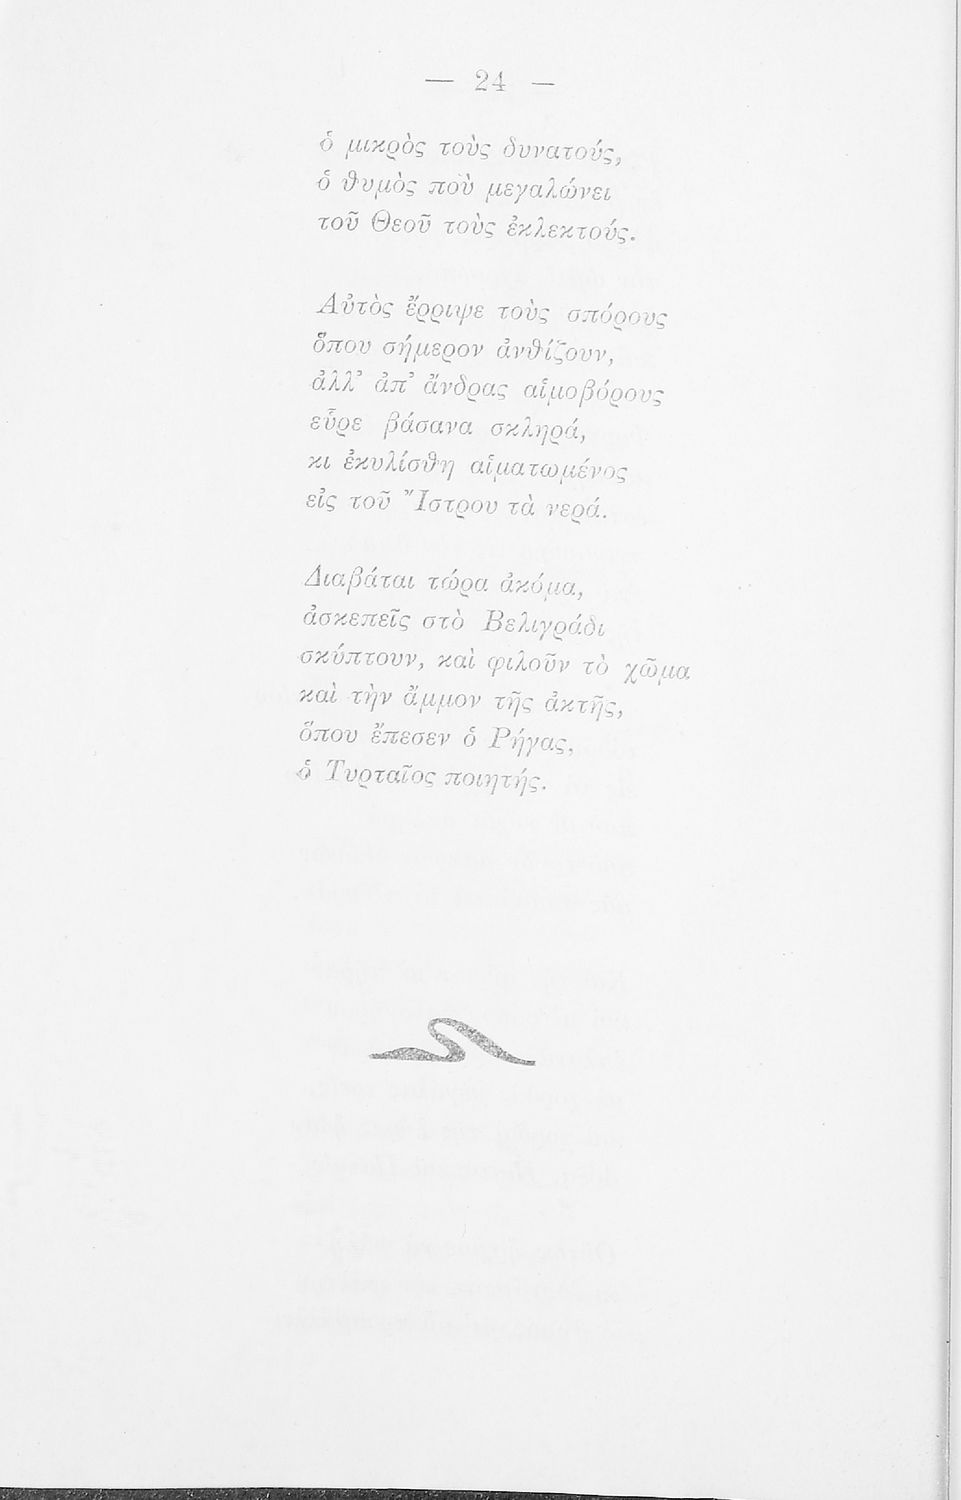 — 24 —
ὁ μικρὸς τοὺς δυνατούς,
ὁ θυμὸς ποὺ μεγαλώνει
τοῦ Θεοῦ τοὺς ἐκλεκτούς.
Αὐτὸς ἔρριψε τοὺς σπόρους
ὅπου σήμερον ἀνθίζουν,
ἀλλ’ ἀπ’ ἄνδρας αἱμοβόρους
εὗρε βάσανα σκληρά,
κι ἐκυλίσθη αἱματωμένος
εἰς τοῦ Ἴστρου τὰ νερά.
Διαβάται τώρα ἀκόμα,
ἀσκεπεῖς στὸ Βελιγράδι
σκύπτουν, καὶ φιλοῦν τὸ χῶμα
καὶ τὴν ἄμμον τῆς ἀκτῆς,
ὅπου ἔπεσεν ὁ Ρήγας,
ὁ Τυρταῖος ποιητής.